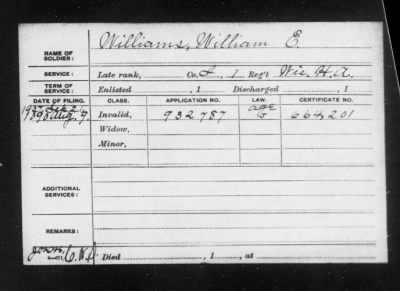 NAME OF SOLDIER: Williams, William E.
SERVICE: Late rank, Co. I, 1 Reg't Wis. H.A.
TERM OF SERVICE: Enlisted , 1 Discharged , 1
DATE OF FILING. CLASS. APPLICATION NO. LAW. CERTIFICATE NO.
1890 Aug. 9. Invalid, 932787 G 664,201
Widow,
Minor,
ADDITIONAL SERVICES:
REMARKS:
C.W. Died , 1 , at